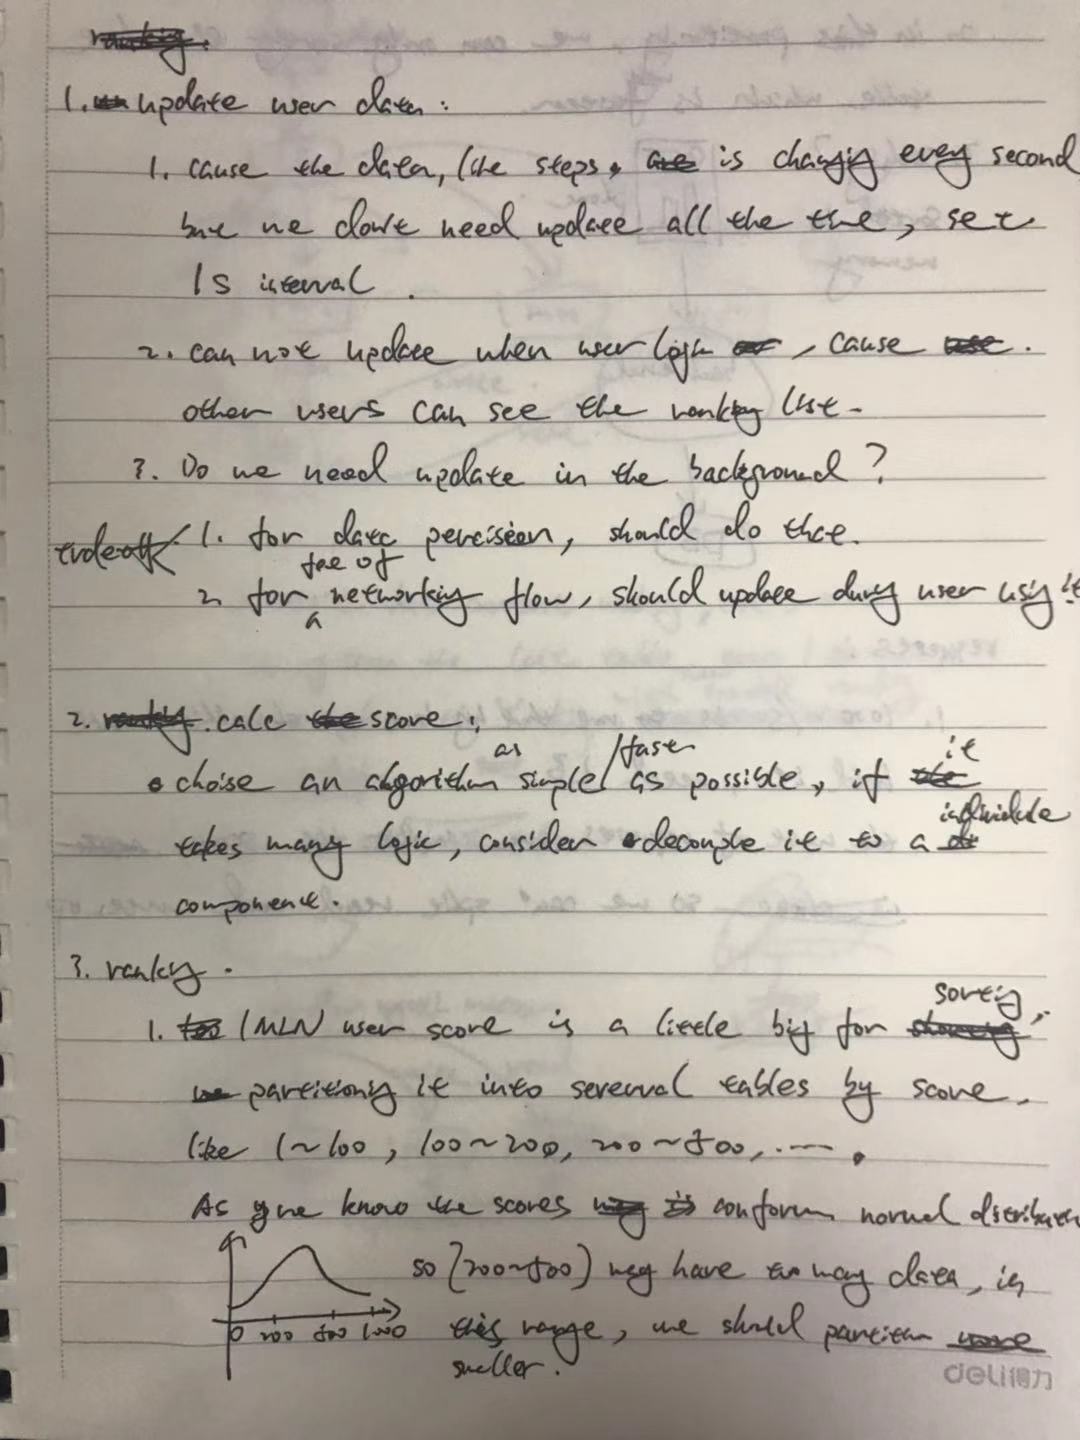 1. update user data:
1. cause the data, (the steps, is changig every second
but we don't need update all the time, set
1s interval.
2. can not update when user login, cause
other users can see the ranking list.
3. Do we need update in the background?
tradeoff 1. for data percision, should do that.
2. for the of networking flow, should update during user usig it
2. calc score:
choise an algorithm as simple/fast as possible, if it
takes many logic, consider decouple it to a individule
component.
3. ranking.
1. 1MLN user score is a little big for sortig,
partitionig it into serveral tables by score,
like 1~100, 100~200, 200~500, ....
As we know the scores conform normal distribution
so (200~500) may have too many data, in
0 200 500 1000
this range, we should partition
smaller.
deli得力